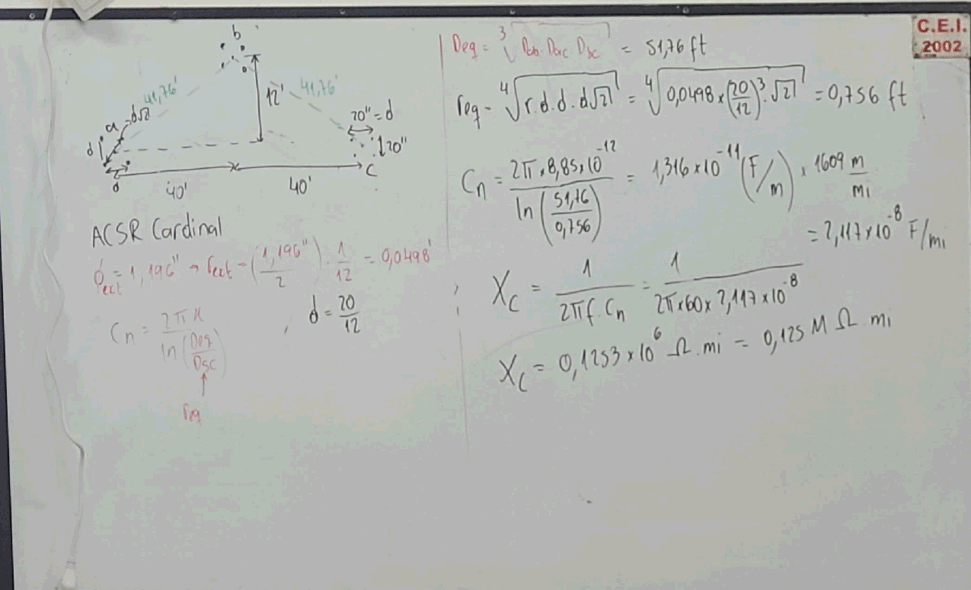 C.E.I.
2002
b
41,76'
41,76'
12'
a
d√2
d
d
20" = d
20"
c
40'
40'
ACSR Cardinal
ϕext = 1,196" → rext = (1,196"/2) · 1/12 = 0,0498'
Cn = 2πK / ln(Deq/Dsc)
req
; d = 20/12
Deq = ∛(Dab · Dac Dbc) = 51,76 ft
req = ⁴√(r.d.d.d√2) = ⁴√(0,0498 × (20/12)³ · √2) = 0,756 ft
Cn = 2π × 8,85 × 10⁻¹² / ln(51,76/0,756) = 1,316 × 10⁻¹¹ (F/m) × 1609 m/mi
= 2,117 × 10⁻⁸ F/mi
; Xc = 1 / 2πf Cn = 1 / 2π × 60 × 2,117 × 10⁻⁸
Xc = 0,1253 × 10⁶ Ω . mi = 0,125 M Ω . mi